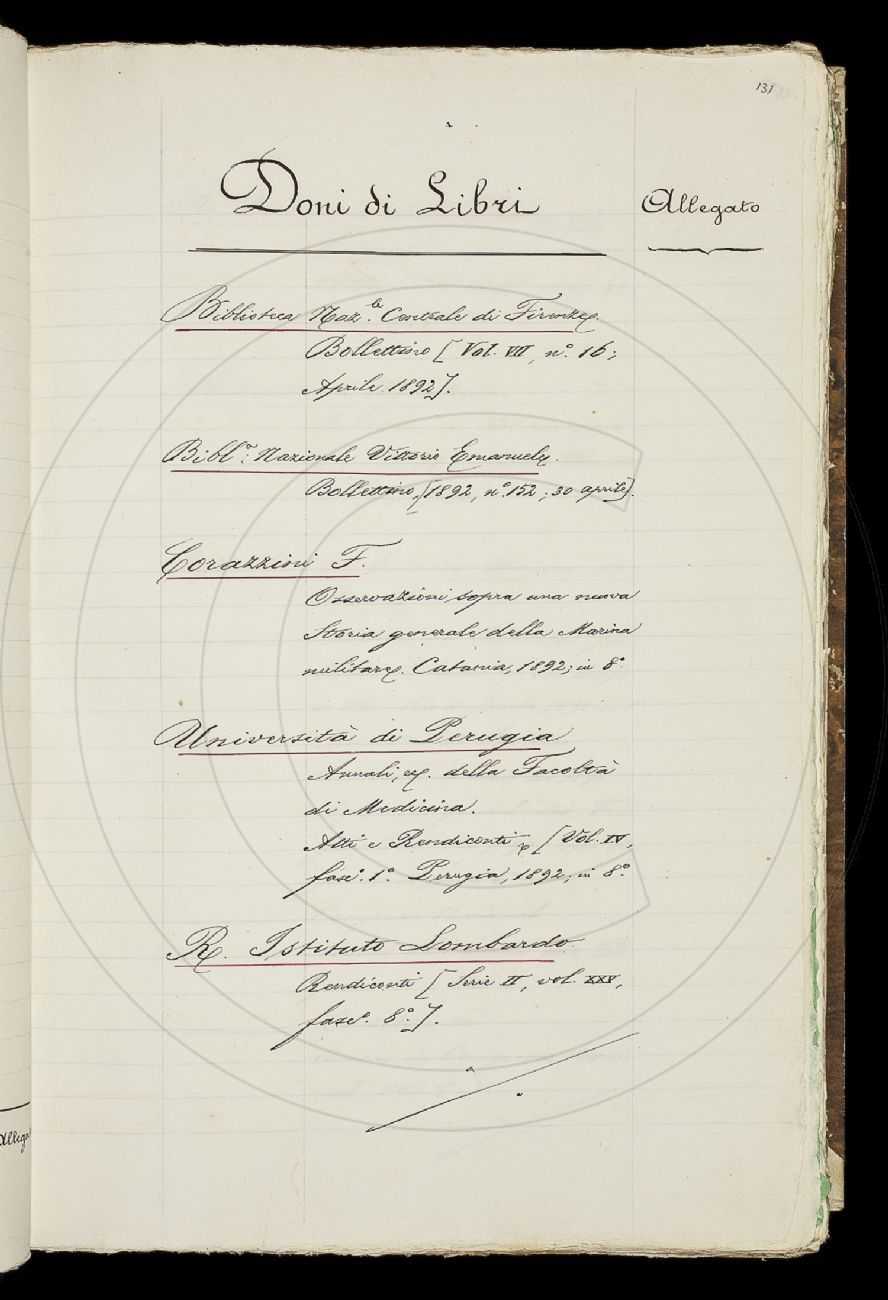 131
Doni di Libri
Allegato
Biblioteca Naz.le Centrale di Firenze.
Bollettino [Vol. VII, n.° 16;
Aprile 1892].
Bibl.a Nazionale Vittorio Emanuele.
Bollettino, [1892, n.° 152; 30 aprile].
Corazzini F.
Osservazioni sopra una nuova
Storia generale della Marina
militare. Catania, 1892; in 8.°
Università di Perugia
Annali, della Facoltà
di Medicina.
Atti e Rendiconti [Vol. IV,
fasc.° 1.° Perugia, 1892; in 8.°
R. Istituto Lombardo.
Rendiconti [Serie II, vol. XXV,
fasc.° 8.°].
Allega